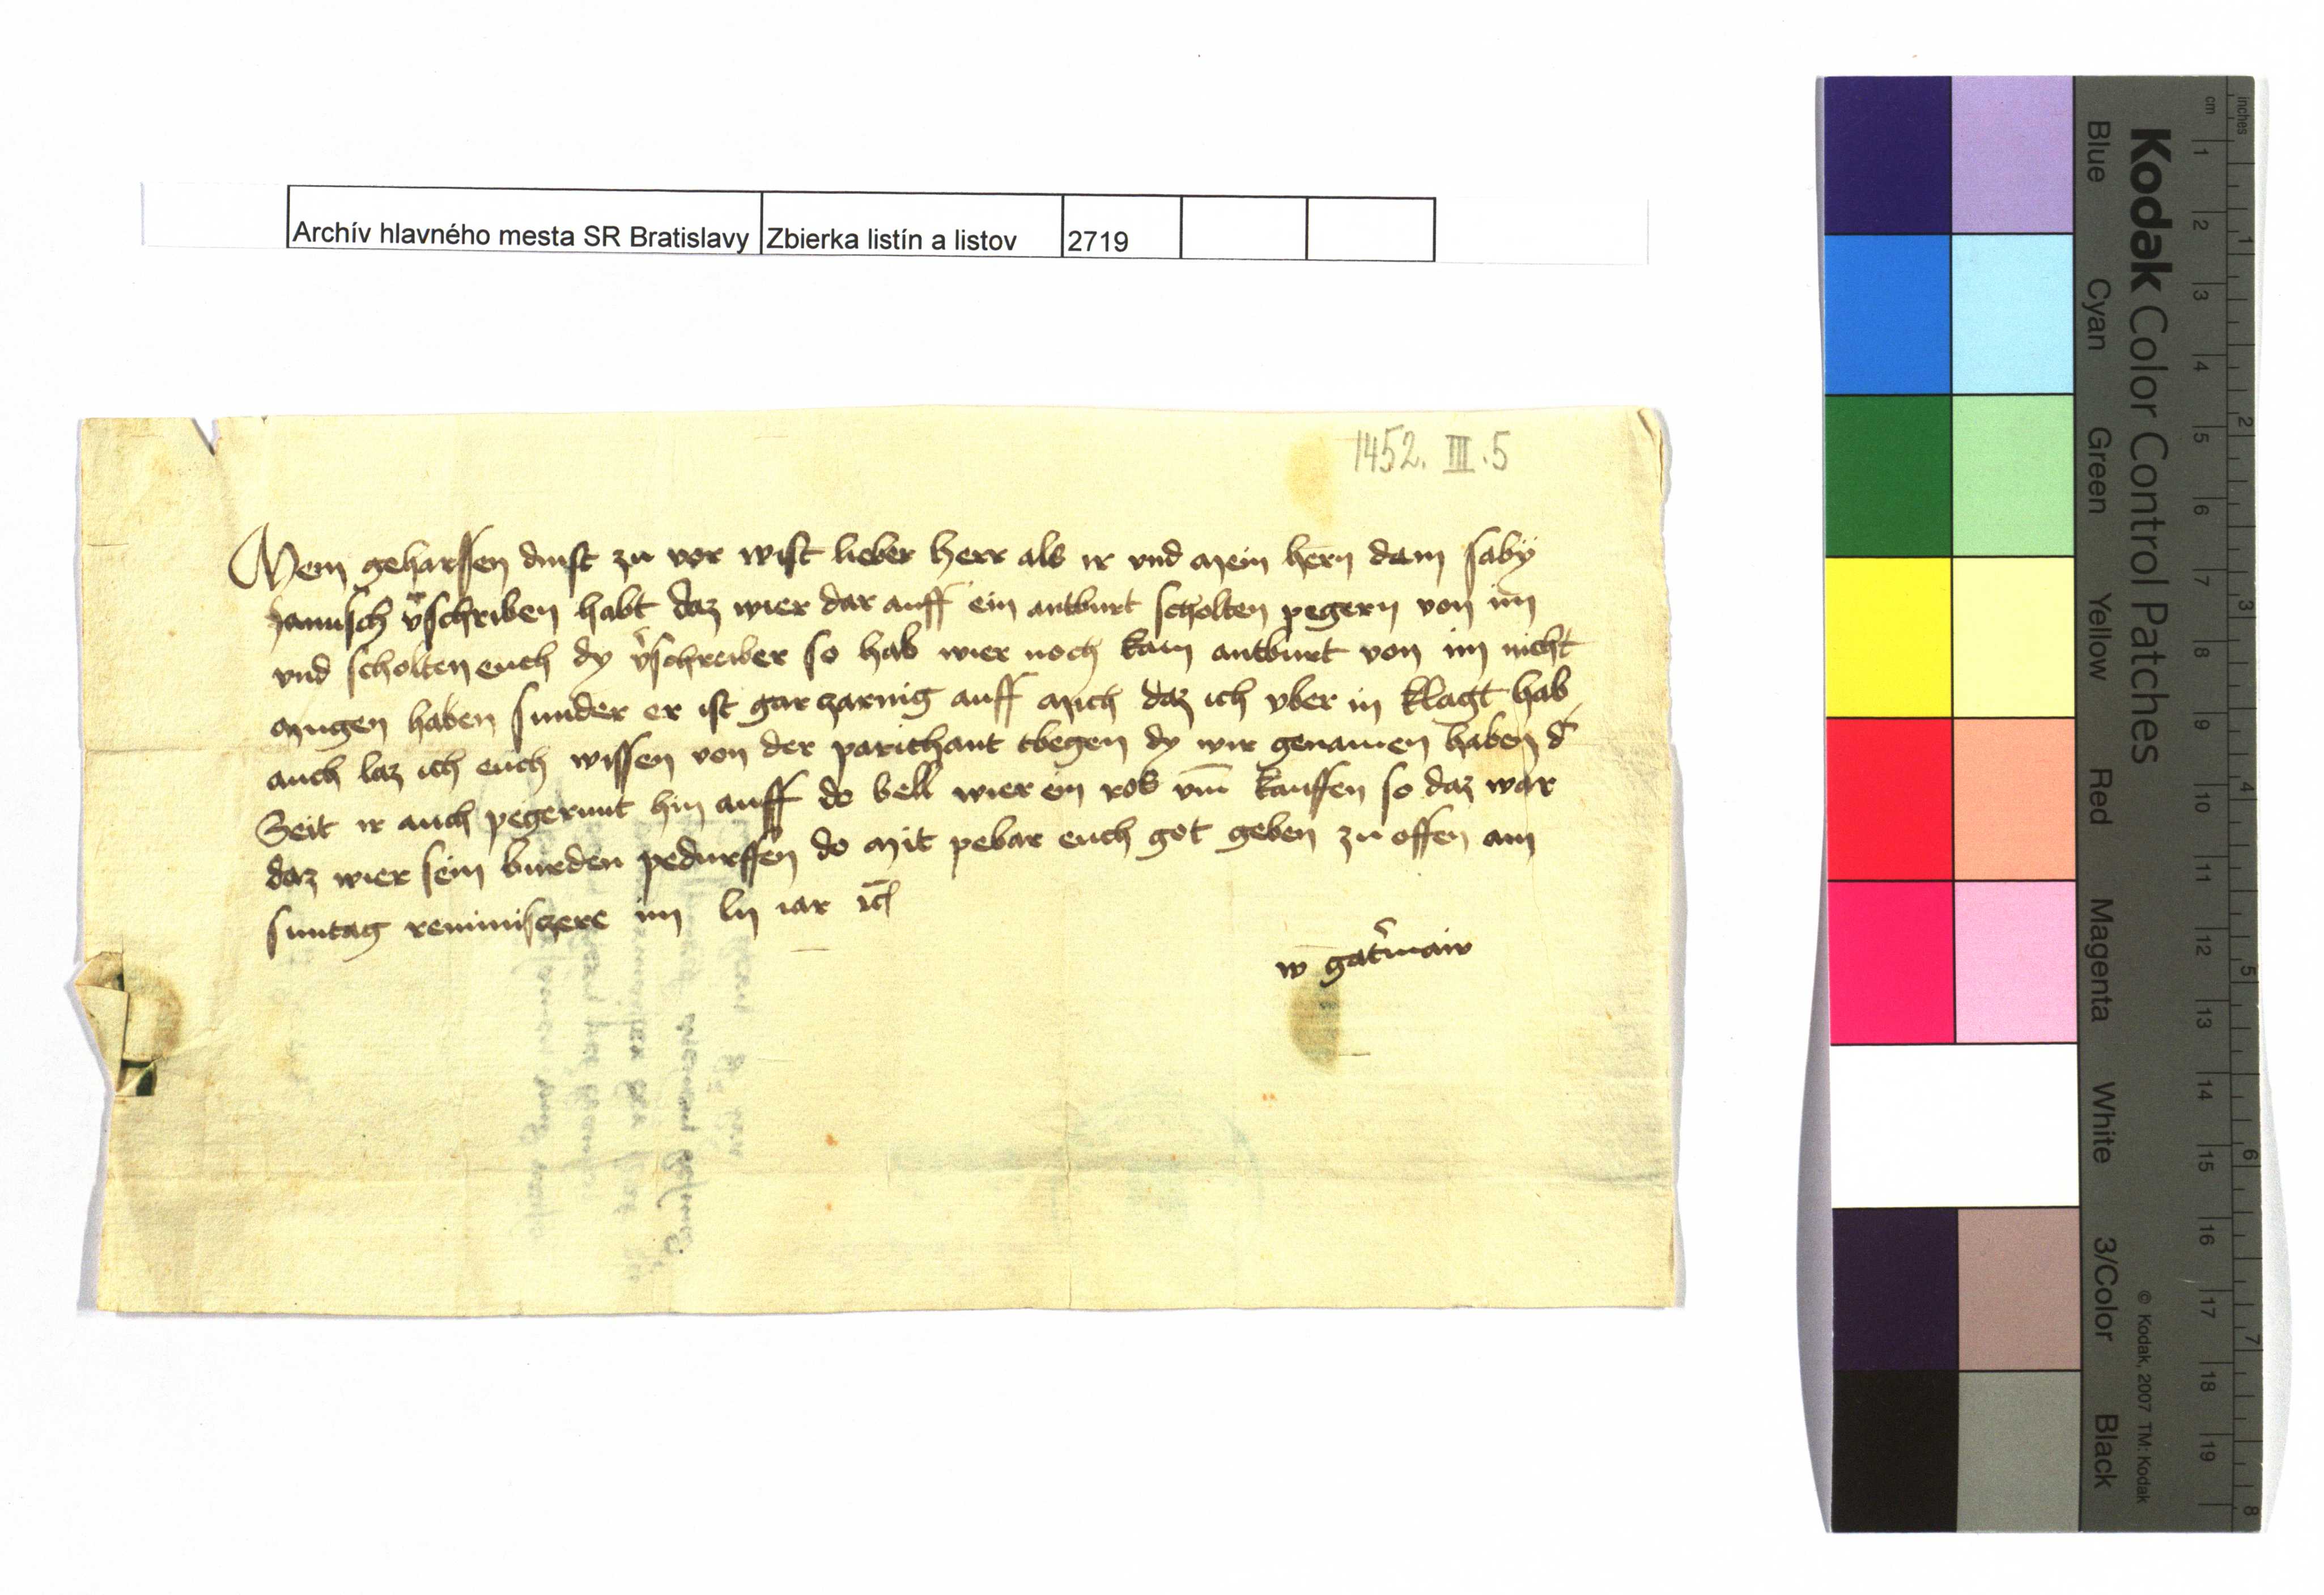 Archív hlavného mesta SR Bratislavy Zbierka listín a listov 2719
1452. III. 5
Mein geharssen dinst zu vor wist lieber herr als ir vnd mein hern dam saby
Jannsch v̄schriben habt daz wier dar auff ein antburt scholten pegern von im
vnd scholten euch dy v̄schreiber so hab wier noch kain antburt von im nicht
mugen haben sunder er ist gar zarnig auff mich daz ich vber in klagt hab
auch laz ich euch wissen von der parichant tbegen dy wir genamen haben d
Seit ir auch pegerunt hin auff do bell wier ein ros vm̄ kauffen so daz war
daz wier sein burden pedurffen do mit pebar euch got geben zu offen am
suntag reminiszere im lii iar
w gat̄mair
Kodak Color Control Patches
Blue Cyan Green Yellow Red Magenta White 3/Color Black
inches 1 2 3 4 5 6 7 8
cm 1 2 3 4 5 6 7 8 9 10 11 12 13 14 15 16 17 18 19
© Kodak, 2007 TM: Kodak